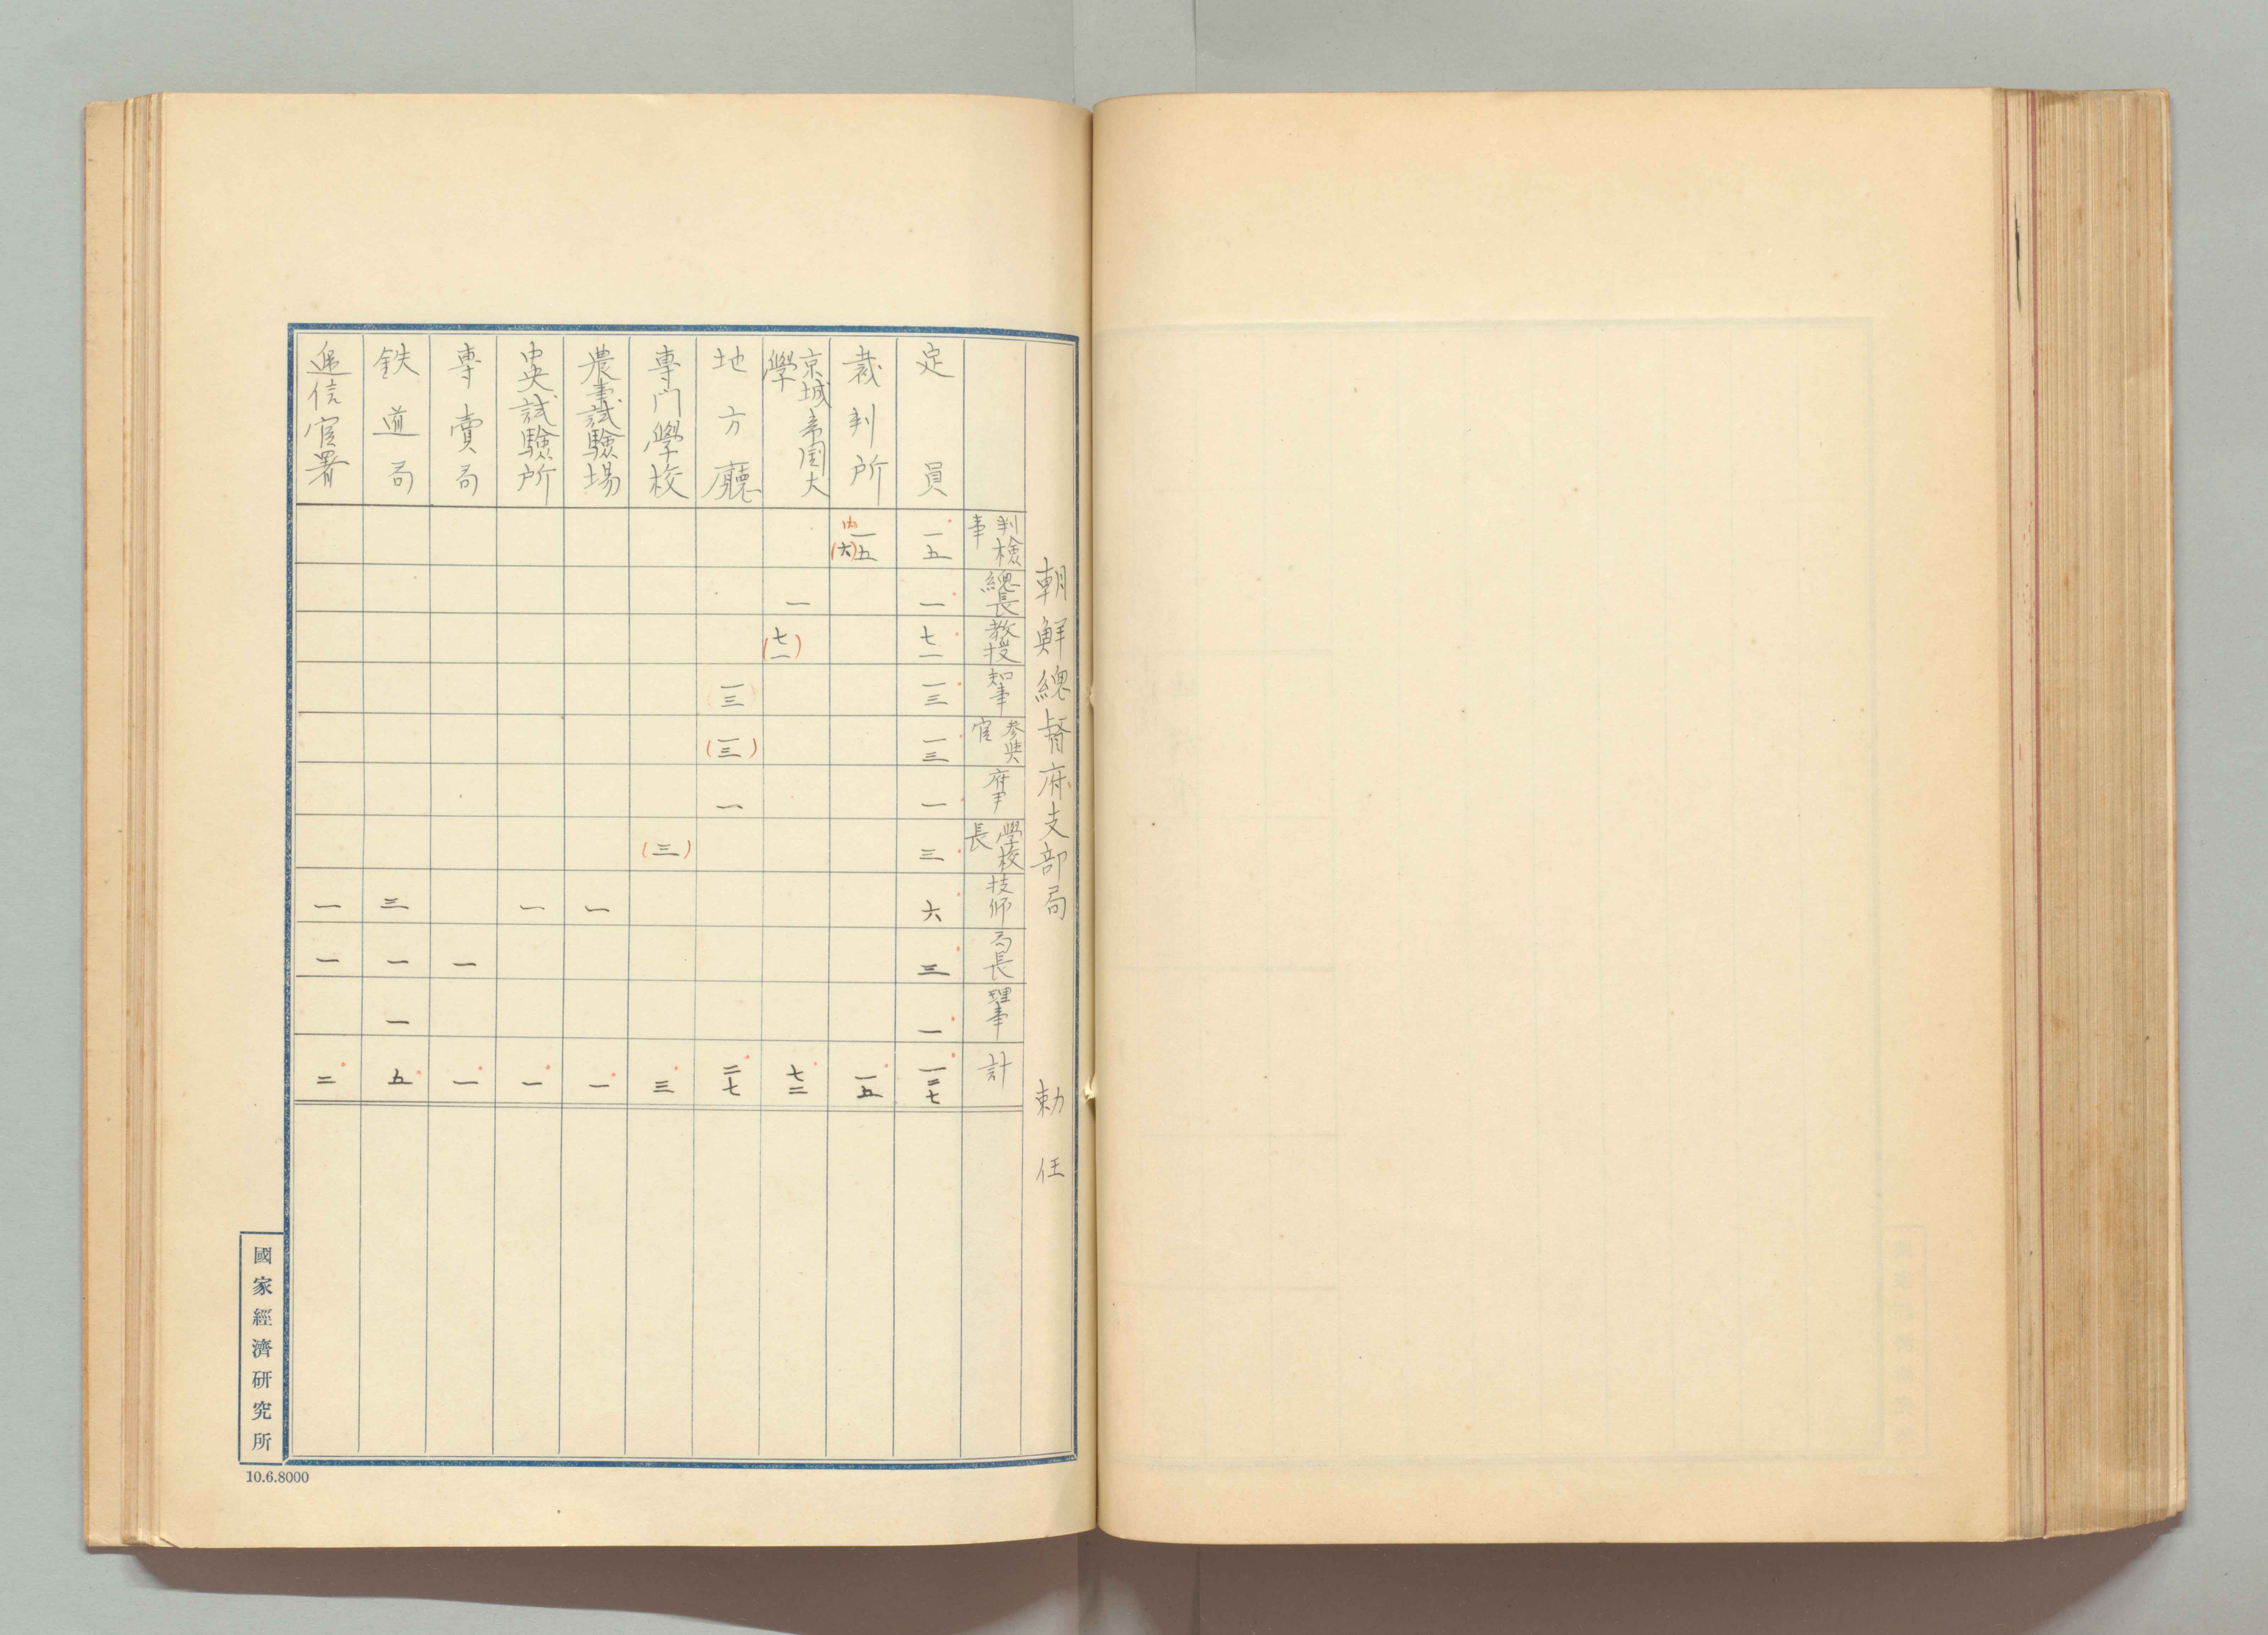 朝鮮總督府支部局 勅任
判檢事 總長 教授 知事 参與官 府尹 學校長 技師 局長 理事 計
定員 一五 一 七一 一三 一三 一 三 六 三 一 一二七
裁判所 一五 内(六) 一五
京城帝国大學 一 (七一) 七二
地方廳 一三 (一三) 一 二七
專門學校 (三) 三
農事試驗場 一 一
中央試驗所 一 一
專賣局 一 一
鉄道局 三 一 一 五
逓信官署 一 一 二
國家經濟研究所
10.6.8000